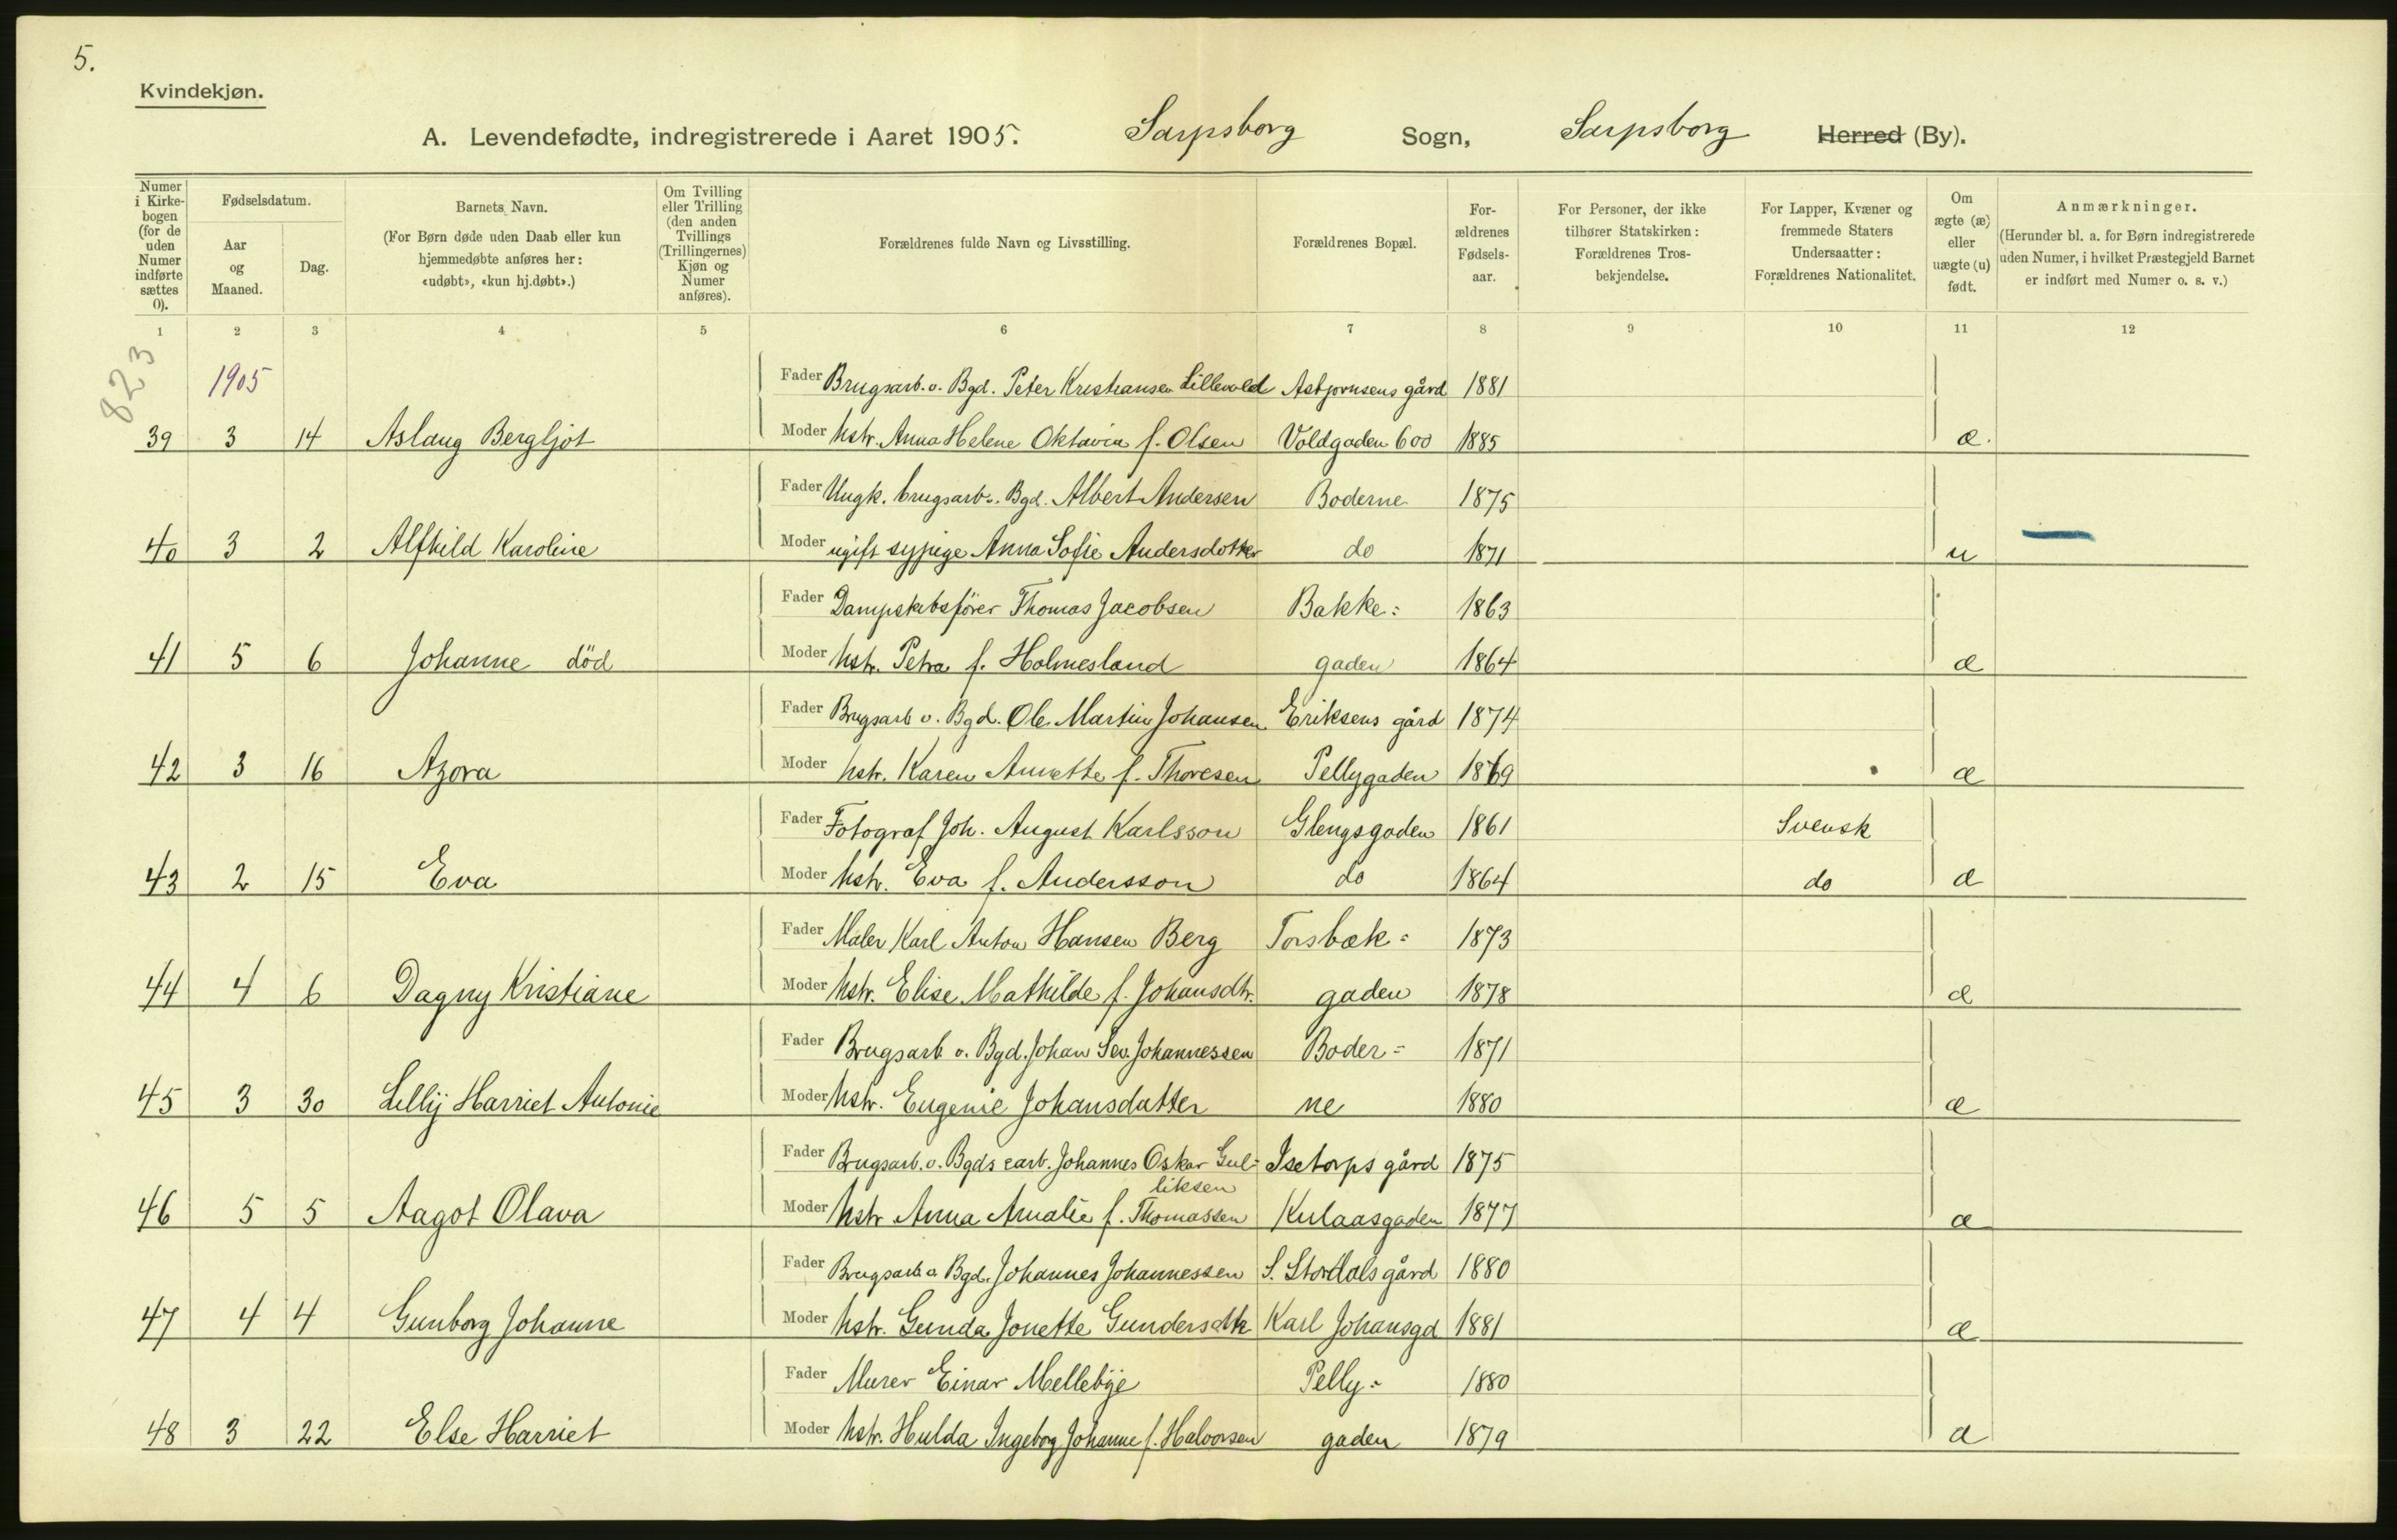 5.
Kvindekjøn.
A. Levendefødte, indregistrerede i Aaret 1905. Sarpsborg Sogn, Sarpsborg Herred (By).
Numer i Kirkebogen (for de uden Numer indførte sættes 0).
Fødselsdatum.
Aar og Maaned.
Dag.
Barnets Navn.
(For Børn døde uden Daab eller kun
hjemmedøbte anføres her:
«udøbt», «kun hj.døbt».)
Om Tvilling eller Trilling (den anden Tvillings (Trillingernes) Kjøn og Numer anføres).
Forældrenes fulde Navn og Livsstilling.
Forældrenes Bopæl.
For-
ældrenes
Fødsels-
aar.
For Personer, der ikke
tilhører Statskirken:
Forældrenes Tros-
bekjendelse.
For Lapper, Kvæner og
fremmede Staters
Undersaatter:
Forældrenes Nationalitet.
Om
ægte (æ)
eller
uægte (u)
født.
Anmærkninger.
(Herunder bl. a. for Børn indregistrerede
uden Numer, i hvilket Præstegjeld Barnet
er indført med Numer o. s. v.)
1 2 3 4 5 6 7 8 9 10 11 12
823
1905 Fader Brugsarb. v. Bgd. Peter Kristiansen Lillevold Asbjornsens gård 1881
39 3 14 Aslaug Bergljot Moder hstr. Anna Helene Oktavia f. Olsen Voldgaden 600 1885 æ.
Fader Ungk. brugsarb. v. Bgd. Albert Andersen Boderne 1875
40 3 2 Alfhild Karoline Moder ugift sypige Anna Sofie Andersdotter do 1871 u
Fader Dampskibsfører Thomas Jacobsen Bakke= 1863
41 5 6 Johanne död Moder hstr. Petra f. Holmesland gaden 1864 æ
Fader Brugsarb v. Bgd. Ole Martin Johansen Eriksens gård 1874
42 3 16 Azora Moder hstr. Karen Annette f. Thoresen Pellygaden 1869 æ
Fader Fotograf Joh. August Karlsson Glengsgaden 1861 Svensk
43 2 15 Eva Moder hstr. Eva f. Andersson do 1864 do æ
Fader Maler Karl Anton Hansen Berg Torsbæk= 1873
44 4 6 Dagny Kristiane Moder hstr. Elise Mathilde f. Johansdtr. gaden 1878 æ
Fader Brugsarb v. Bgd. Johan Sev. Johannessen Boder= 1871
45 3 30 Lillÿ Harriet Antonie Moder hstr. Eugenie Johansdatter ne 1880 æ
Fader Brugsarb. v. Bgds earb. Johannes Oskar Gul= Isetorps gård 1875
liksen
46 5 5 Aagot Olava Moder hstr Anna Amalie f. Thomassen Kulaasgaden 1877 æ
Fader Brugsarb v. Bgd. Johannes Johannessen S. Stordals gård 1880
47 4 4 Gunborg Johanne Moder hstr. Gunda Jonette Gundersdtr Karl Johansgd 1881 æ
Fader Murer Einar Mellebÿe Pelly= 1880
48 3 22 Else Harriet Moder hstr. Hulda Ingeborg Johanne f. Halvorsen gaden 1879 æ